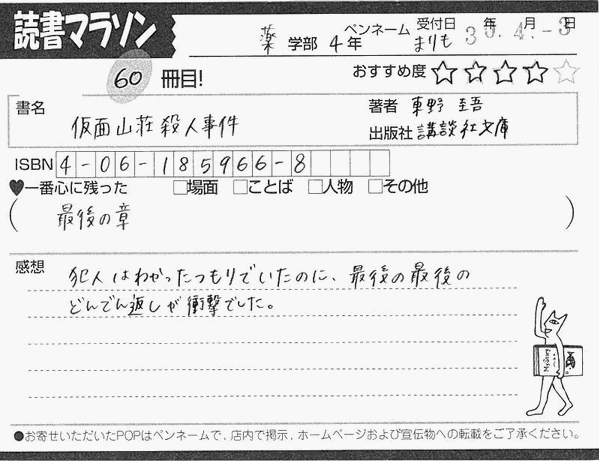 読書マラソン
薬 学部 4年 ペンネーム まりも 受付日 30年 4月 -3日
60 冊目!
おすすめ度 ☆☆☆☆☆
書名 仮面山荘殺人事件
著者 東野 圭吾
出版社 講談社文庫
ISBN 4-06-185966-8
♥一番心に残った □場面 □ことば □人物 □その他
(最後の章)
感想
犯人はわかったつもりでいたのに、最後の最後の
どんでん返しが衝撃でした。
●お寄せいただいたPOPはペンネームで、店内で掲示、ホームページおよび宣伝物への転載をご了承ください。